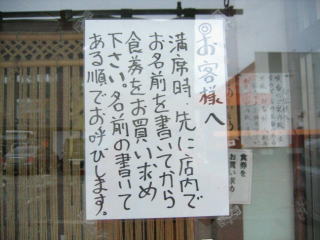 ◎お客様へ
満席時、先に店内で
お名前を書いてから
食券をお買い求め
下さい。名前の書いて
ある順でお呼びします。
食券を
お買い求め